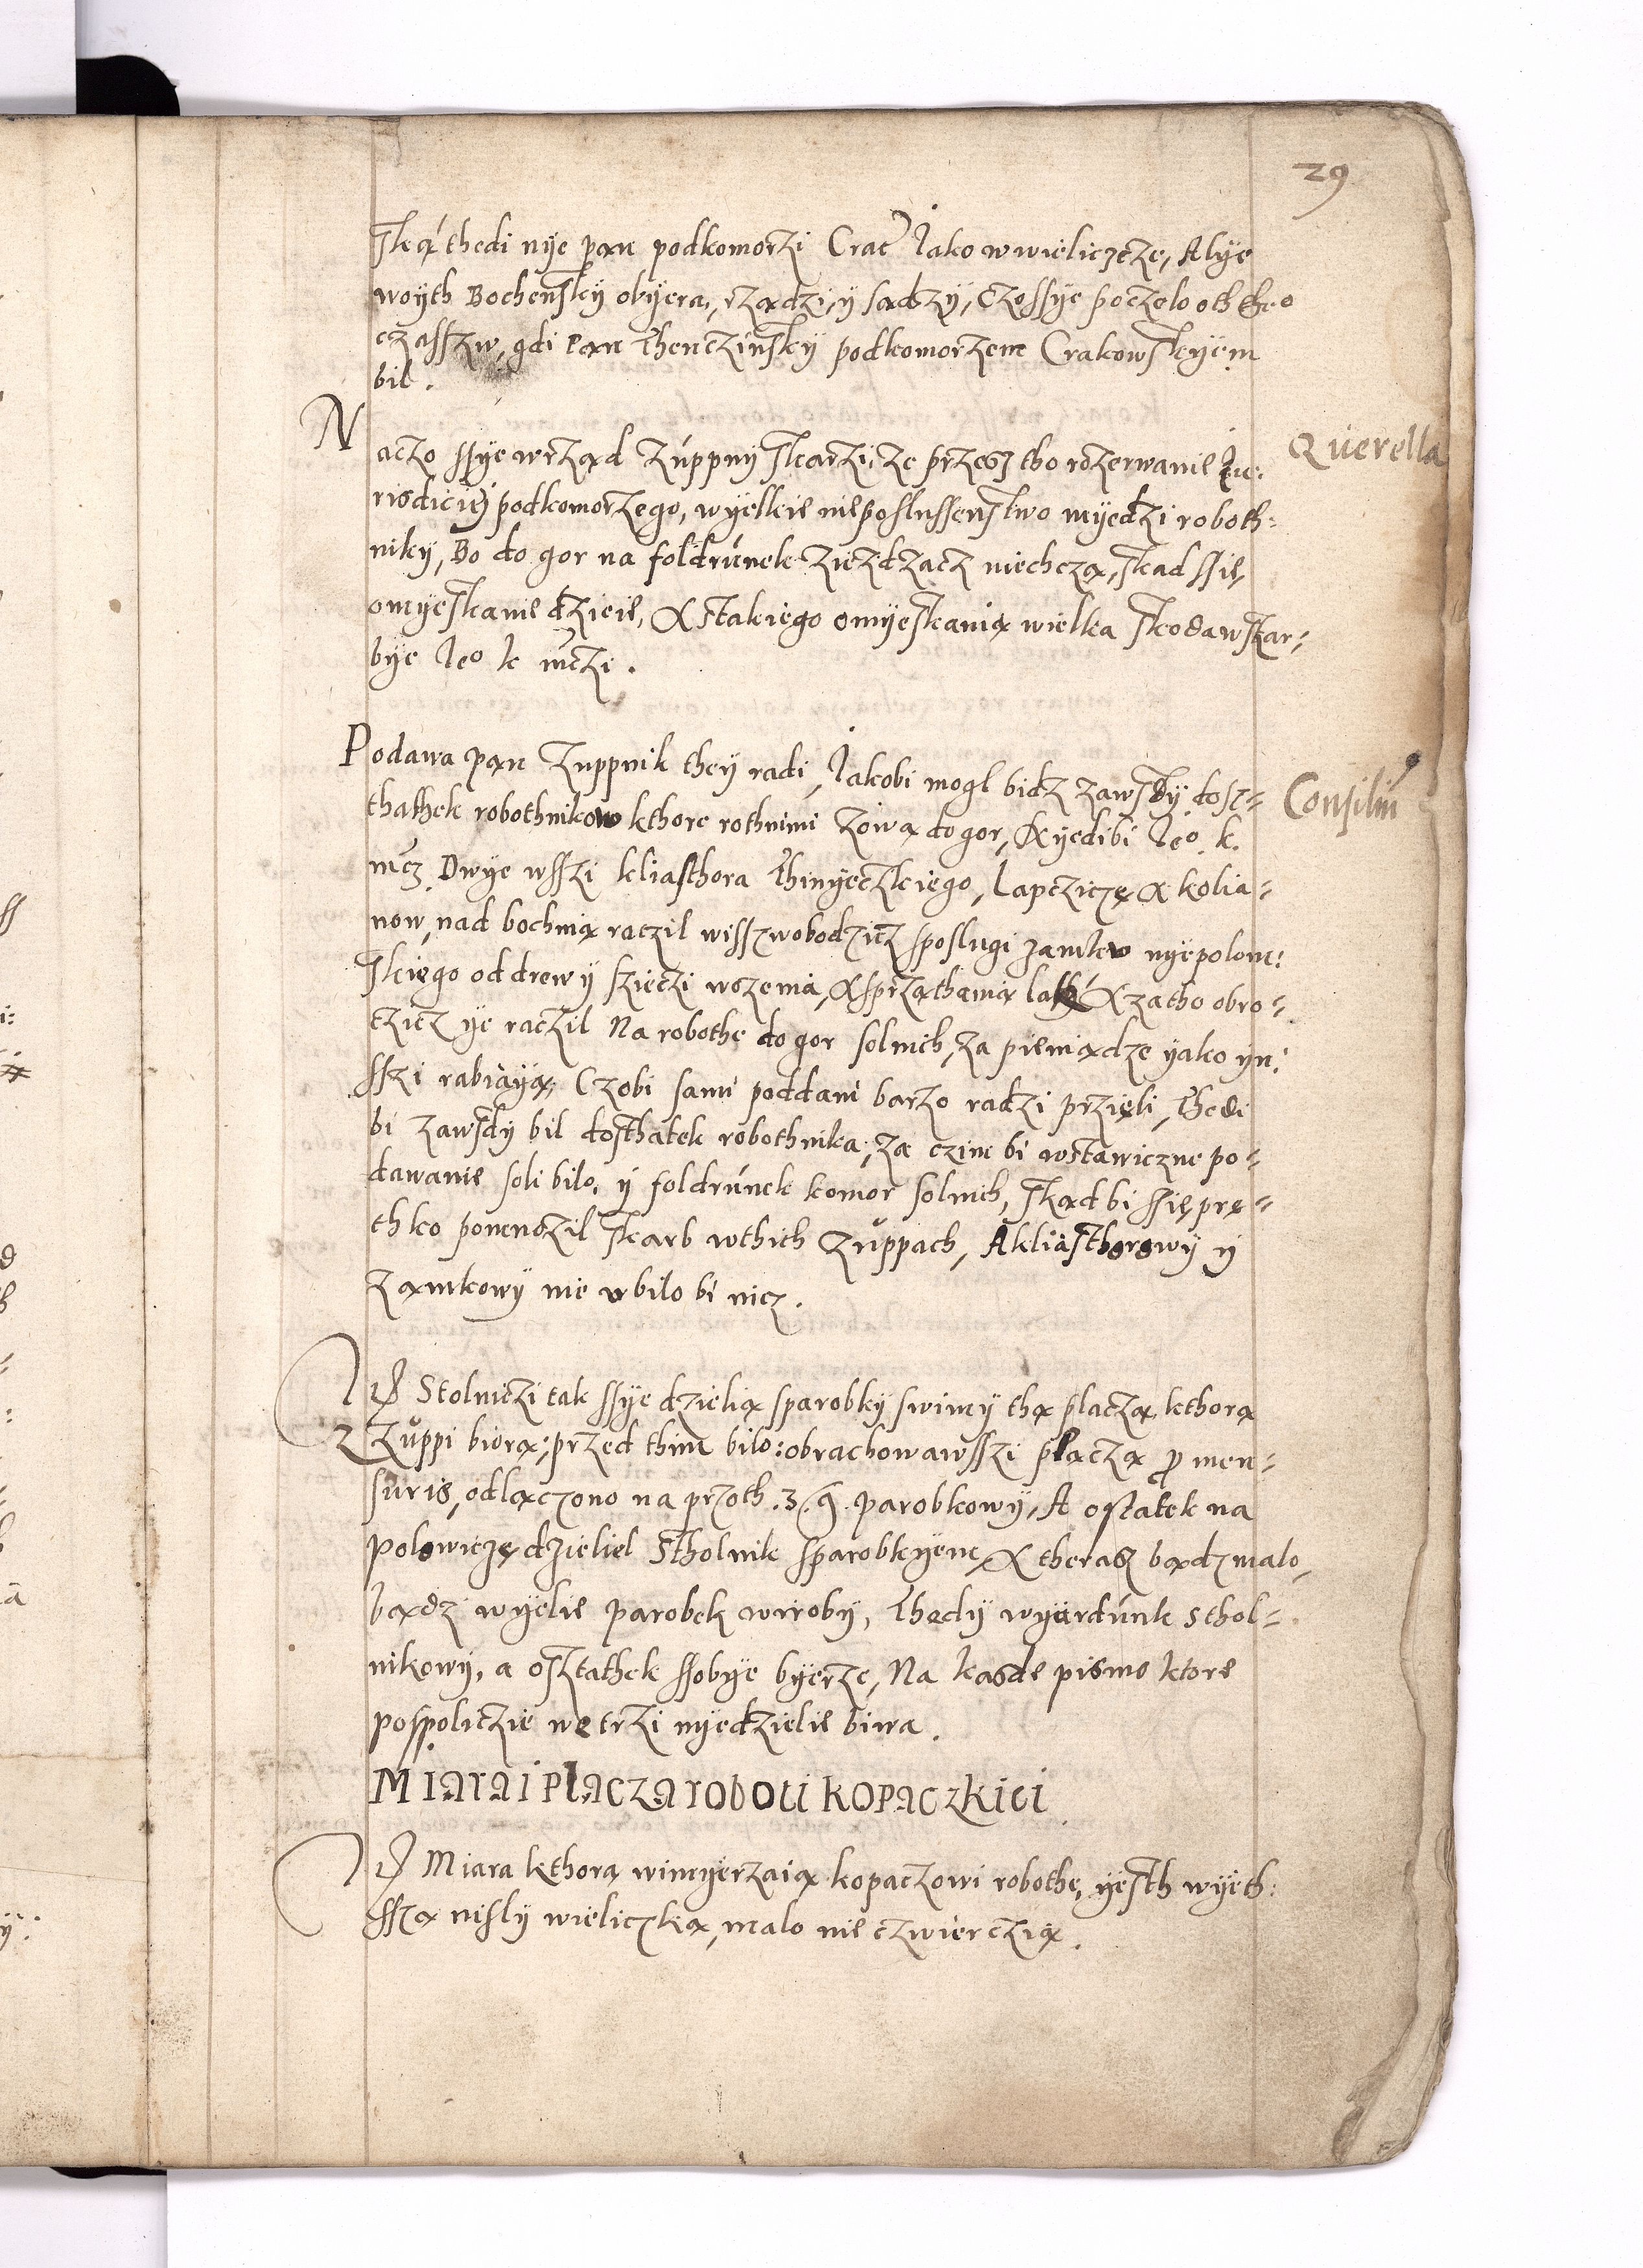 29
skᶏ thedi nye pan podkomorzi Crac Jako w wieliczcze, Alye
woyth Bochensky obyera, rzadzi, y sadzy, Czossye poczelo oth the°
czasszw, gdi Pan Thenczinsky podkomorzem Crakowskyem
bil.
Naczo ssye wrzad Zuppny skarzi, ze przesz tho rozerwanie Ju-
Querella
risdiciej podkomorzego, wyelkie nieposlussenstwo myedzi roboth-
niky, Bo do gor na foldrunek ziezdzacz niechczą, skad ssię
omyeskanie dzieie, A stakiego omyeskania wielka skoda w skar-
bye Jeo k mczi.
Podawa pan Zuppnik they radi, Jakobi mogl bidz zawsdy dosz-
Consiliu
thathek robothnikow kthore rothnimi zowa do gor, Kyedibi Jeo. k.
mcz. Dwye wsszi kliasthora Thinyeczkiego, Lapczicze a kolia-
now, nad bochnia raczil wisszwobodzicz sposlugi zamkw nyepolom-
skiego od drew y szieczi wozenia, A sprzathania lak A za tho obro-
czicz ye raczil Na robothe do gor solnich, za pieniadze yako yn-
sszi rabiayą, Czobi sami poddani barzo radzi przięli, Thedi
bi zawsdy bil dosthatek robothnika, za czim bi wstawiczne po-
dawanie soli bilo, y foldrunek komor solnich, skadbi ssię prę-
thko pomnozil skarb w thich Zuppach, A kliasthorowy y
zamkowy nie vbilo bi nicz.
Stolniczi tak ssye dzielia sparobky swimy tha placza, kthora
z Zuppi biora; przed thim bilo: obrachowawsszi placza p men-
suris, odlaczono na przoth .3. g. parobkowy, A ostatek na
polowiczę dzieliel Stholnik sparobkyem, A theraz badz malo,
badzi wyelie parobek wiroby, Thedy wyerdunk sthol-
nikowy, a osztathek ssobye byerze, Na kasde pismo ktore
pospoliczie we trzi nyedzielie biwa.
Miara i placza roboti kopaczkiei
Miara kthora wimyerzaia kopaczowi robothe, yesth wyeth-
ssza nisly wieliczka, malo nie czwierczia.